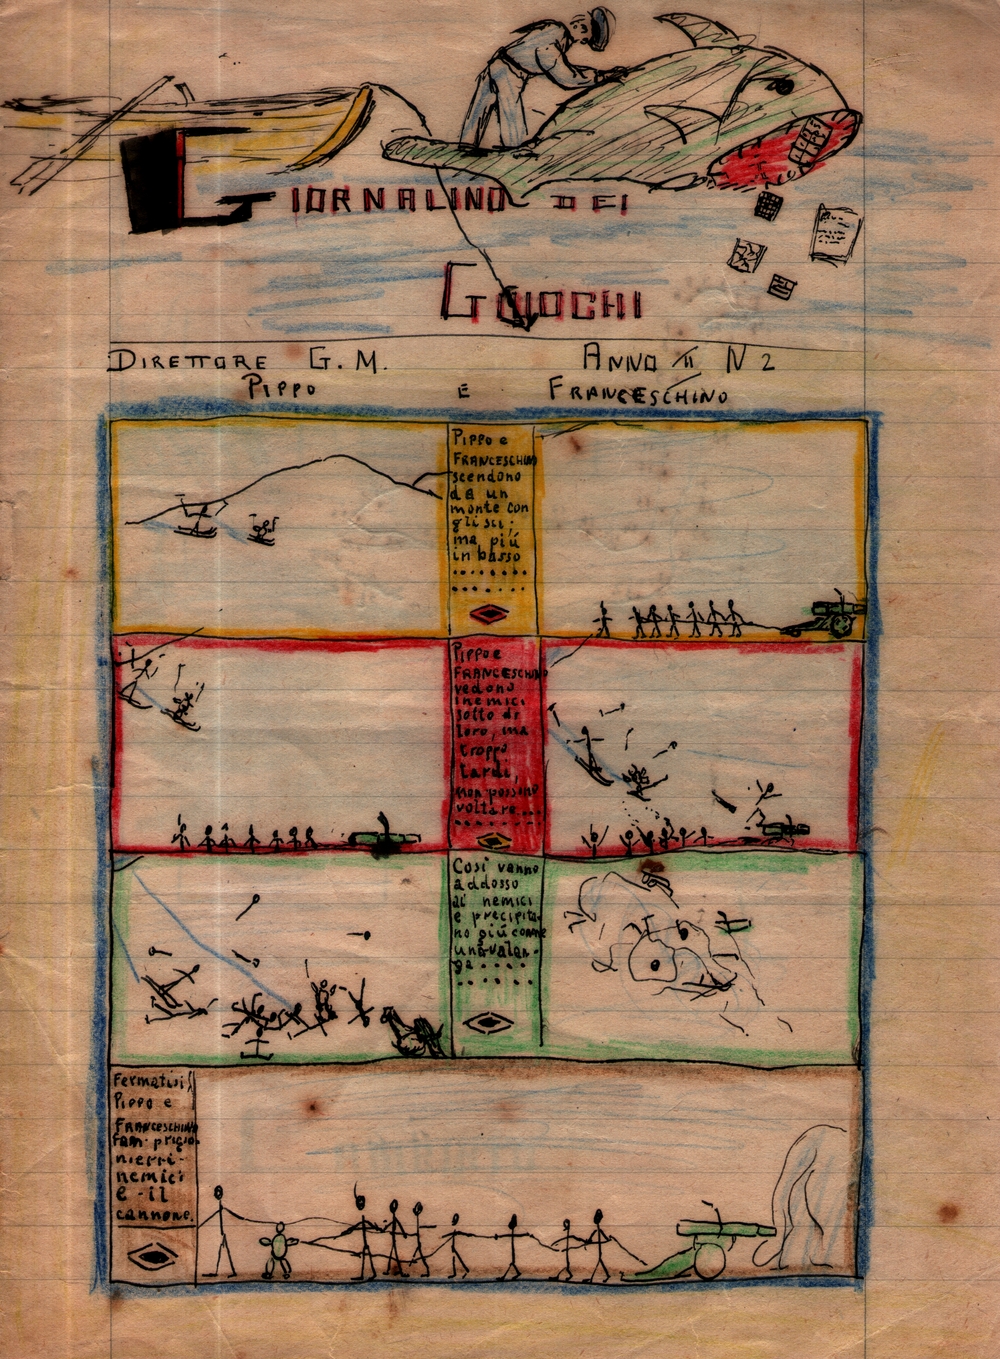 GIORNALINO DEI
GIUOCHI
DIRETTORE G. M. ANNO II N 2
PIPPO E FRANCESCHINO
Pippo e
FRANCESCHINO
scendono
da un
monte con
gli sci;
ma più
in basso
........
......
Pippo e
FRANCESCHINO
vedono
i nemici
sotto di
loro, ma
troppo
tardi,
non possono
voltare...
........
Così vanno
addosso
ai nemici
e precipita-
no giù come
una valan-
ga....
......
Fermatisi
Pippo e
FRANCESCHINO
fan prigio-
nieri i
nemici
e il
cannone.